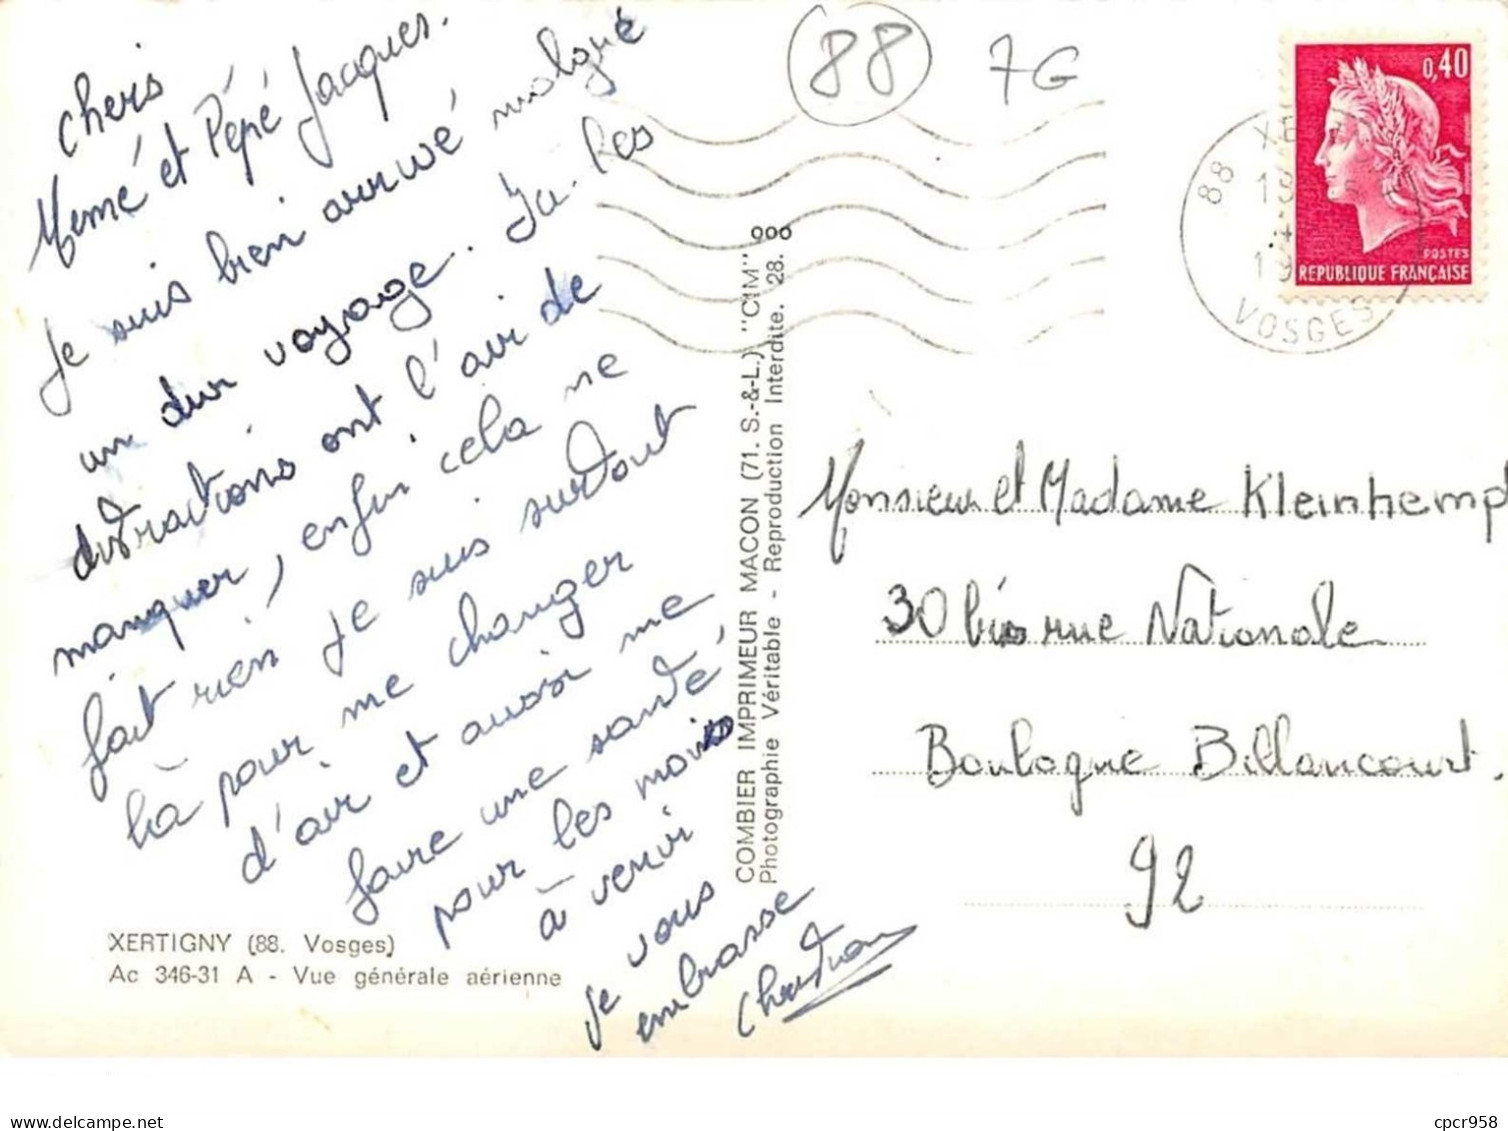 chers
Mémé et Pépé Jacques.
Je suis bien arrivé malgré
un dur voyage. Ici les
distractions ont l'air de
manquer, enfin cela ne
fait rien je suis surtout
là pour me changer
d'air et aussi me
faire une santé
pour les mois
à venir
je vous
embrasse
Christian
XERTIGNY (88. Vosges)
Ac 346-31 A - Vue générale aérienne
COMBIER IMPRIMEUR MACON (71. S.-&-L.) "CIM"
Photographie Véritable - Reproduction Interdite. 28.
88
7G
0,40
POSTES
REPUBLIQUE FRANÇAISE
88
VOSGES
Monsieur et Madame Kleinhemp
30 bis rue Nationale
Boulogne Billancourt.
92
cpcr958